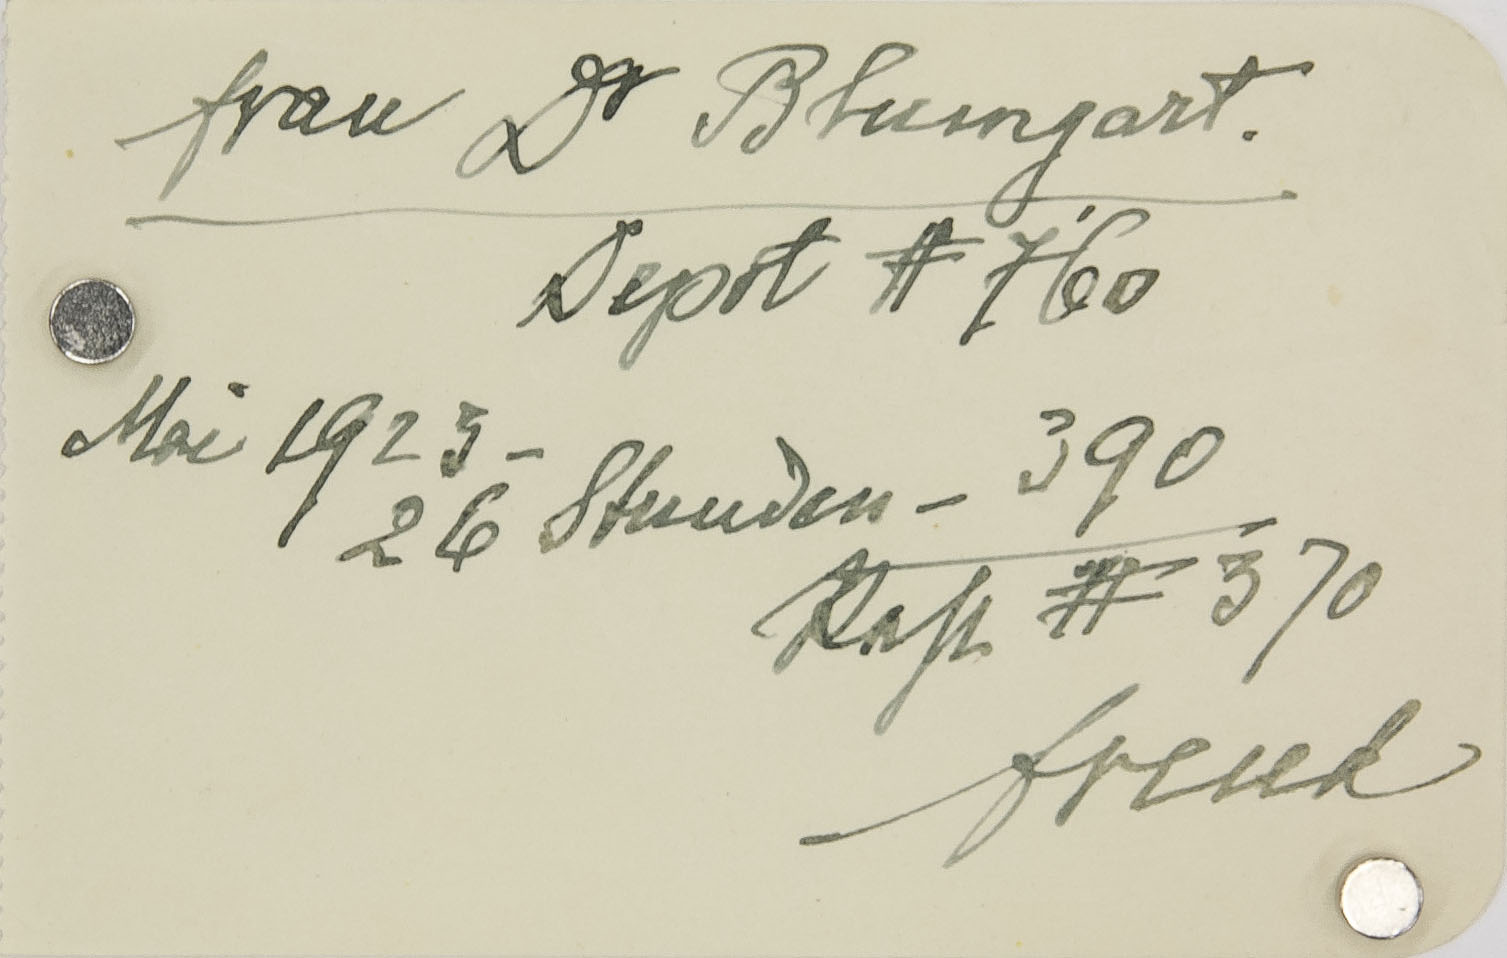 Frau Dr Blumgart.
Depot # 760
Mai 1923 –
26 Stunden – 390
Rest # 370
Freud